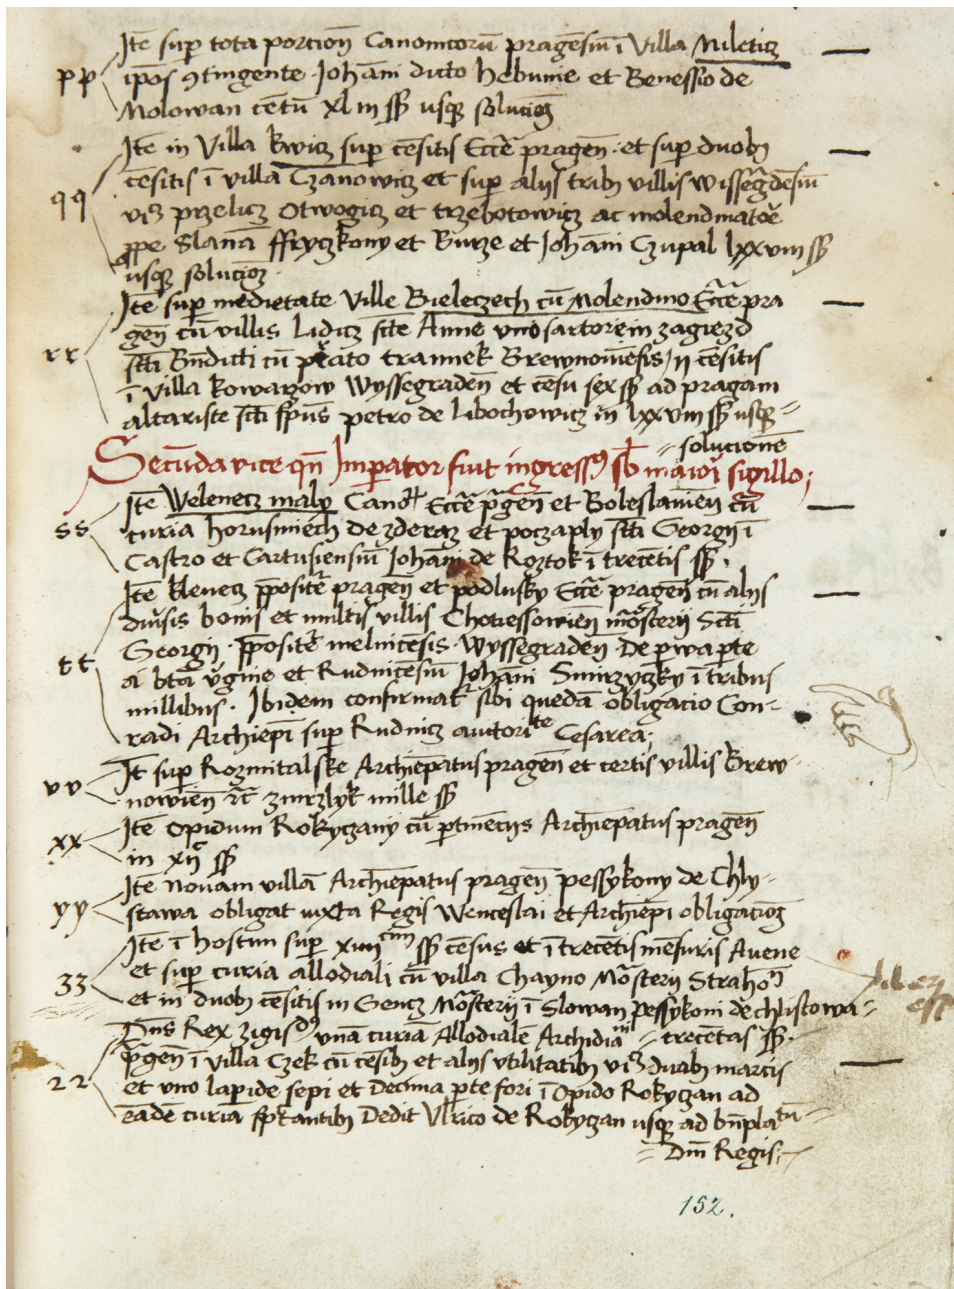 Itē sup tota portionē Canonicorū pragēsiū ī Villa Mileticz
pp
ipōs ꝯtingente Johāni dicto hebume et Benessio de
Molowan cētū xl iii ss usqꝫ solucioꝫ
Itē in Villa kwicz sup cēsitis Eccē pragēn et sup duobꝫ
qq
cēsitis ī villa Czanowicz et sup alijs tribꝫ villis wissegdēsiū
vꝫ przelicz Otwogicz et trzebotowicz ac molendinatoē
ꝓpe Slanā ffryczkony et Burze et Johāni Czupal lxxviii ss
usqꝫ solucioꝫ
Itē sup medietate Ville Bieleczech cū Molendino Eccē pra
gēn cū villis Lidicz scē Anne uno sartore in zagiezd
rr
scti Bndicti cū pcāto tramek Brewnouiēsis ij cēsitis
ī Villa kowarzow Wyssegradēn et cēsu sex ss ad pragam
altariste scti spūs petro de Libochowicz in lxxviii ss usqꝫ =
= solucionē
Secūda vice qn Imperator fuit ingressꝰ sb maiori sigillo;
Itē Welenecz malꝑ Cand Eccē pgēn et Boleslauiēn cū
ss
curia horusmiech de zderaz et poczaply scti Georgij ī
Castro et Cartusiensiū Johāni de Roztok ī trecētis ss.
Itē klenecz ppositē pragēn et podlusky Eccē pragēn cū alijs
diūsis bonis et multis villis Chotiessowiēn mōsterij Scti
Georgij. pposite melnicēsis. Wyssegradēn. De pwa pte
tt
a btā vgine et Rudnicesiū Johāni Smirzyczky ī tribus
millibus. Ibidem confirmat sibi quedā obligacio Con-
radi Archiepī sup Rudnicz autorite Cesarea;
It sup Rozmitalske Archiepatus pragēn et certis villis Brew-
vv
nowiēn zc zmrzlyk mille ss
Itē Opidum Rokyczany cū ptinēciis Archiepatus pragēn
xx
in xij ss
Itē nouam villā Archiepatus pragēn pessykony de Chly-
yy
stawa obligat iuxta Regis Wenceslai et Archiepi obligacioꝫ
Itē ī hostun sup xiiii cim ss cēsus et ī trecētis mēsuris Auene
33
et sup curia allodiali cū villa Chayno Mōsterij Strahoī
et in duobꝫ cēsitis in Gencz Mōsterij ī Slowan pessykoni de chlistowa =
Dns Rex zigisdꝰ unā curiā Allodialē Archidia = trecētas ss.
pgēn ī villa Czek cū cēsibꝫ et alijs utilitatibꝫ vꝫ Duabꝫ marcis
22
et uno lapide sepi et Decima pte fori ī Opido Rokyczan ad
eādē curia spectantibꝫ Dedit Ulrico de Rokyczan usqꝫ ad bnplatū =
= Dni Regis;
152.